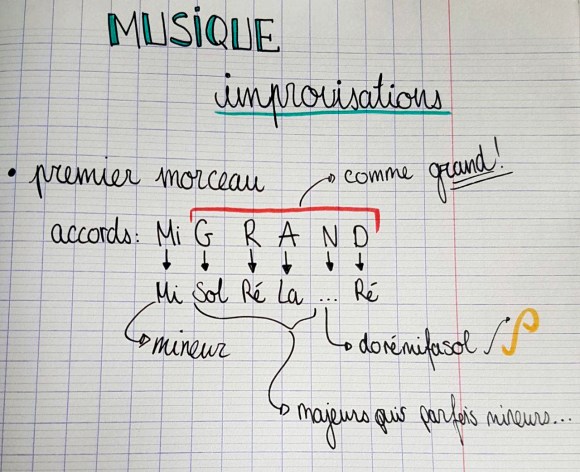 MUSIQUE
improvisations
• premier morceau
comme grand!
accords: Mi G R A N D
Mi Sol Ré La ... Ré
mineur
dorémifasol
majeurs puis parfois mineurs...